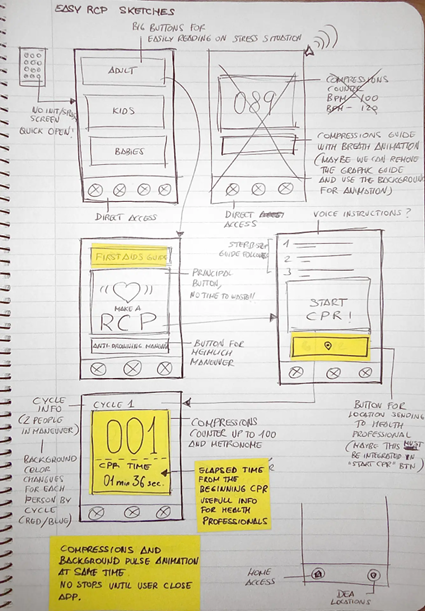 EASY RCP SKETCHES
BIG BUTTONS FOR
EASILY READING ON STRESS SITUATION
ADULT
KIDS
BABIES
NO INIT/SPLASH
SCREEN
QUICK OPEN!
DIRECT ACCESS
089
COMPRESSIONS
COUNTER
BPM - 100
BPM - 120
COMPRESSIONS GUIDE
WITH BREATH ANIMATION
(MAYBE WE CAN REMOVE
THE GRAPHIC GUIDE
AND USE THE BACKGROUND
FOR ANIMATION)
DIRECT
ACCESS
VOICE INSTRUCTIONS?
FIRST AIDS GUIDE
MAKE A
RCP
ANTI-DROWNING
PRINCIPAL
BUTTON,
NO TIME TO WASTE!!
BUTTON FOR
HEIMLICH
MANEUVER
STEP BY STEP
GUIDE FOLLOWED
1
2
3
START
CPR!
BUTTON FOR
LOCATION SENDING
TO HEALTH
PROFESSIONAL
(MAYBE THIS MUST
BE INTEGRATED IN
"START CPR" BTN.)
CYCLE
INFO
(2 PEOPLE
IN MANEUVER)
BACKGROUND
COLOR
CHANGUES
FOR EACH
PERSON BY
CYCLE
(RED/BLUE)
CYCLE 1
001
CPR TIME
01 min 36 sec.
COMPRESSIONS
COUNTER UP TO 100
AND METRONOME
ELAPSED TIME
FROM THE
BEGINNING CPR
USEFULL INFO
FOR HEALTH
PROFESSIONALS
COMPRESSIONS AND
BACKGROUND PULSE ANIMATION
AT SAME TIME.
NO STOPS UNTIL USER CLOSE
APP.
HOME
ACCESS
DEA
LOCATIONS